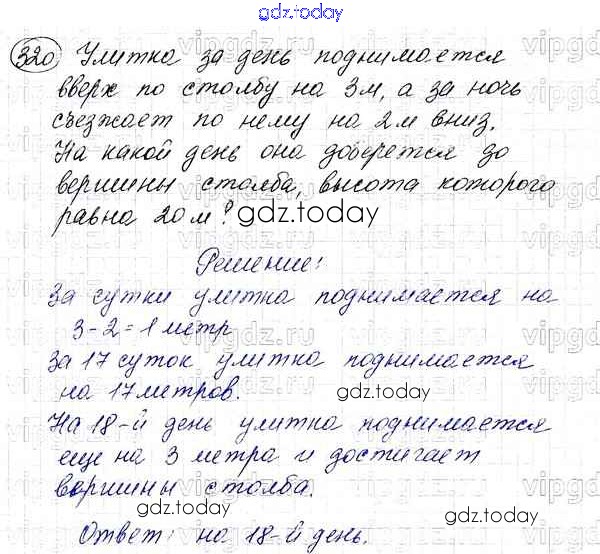 gdz.today
320 Улитка за день поднимается
вверх по столбу на 3м, а за ночь
съезжает по нему на 2м вниз.
На какой день она доберется до
вершины столба, высота которого
равна 20м?
gdz.today
Решение:
За сутки улитка поднимается на
3-2=1 метр
За 17 суток улитка поднимается
на 17 метров.
gdz.today
На 18-й день улитка поднимается
еще на 3 метра и достигает
вершины столба.
gdz.today
Ответ: на 18-й день.